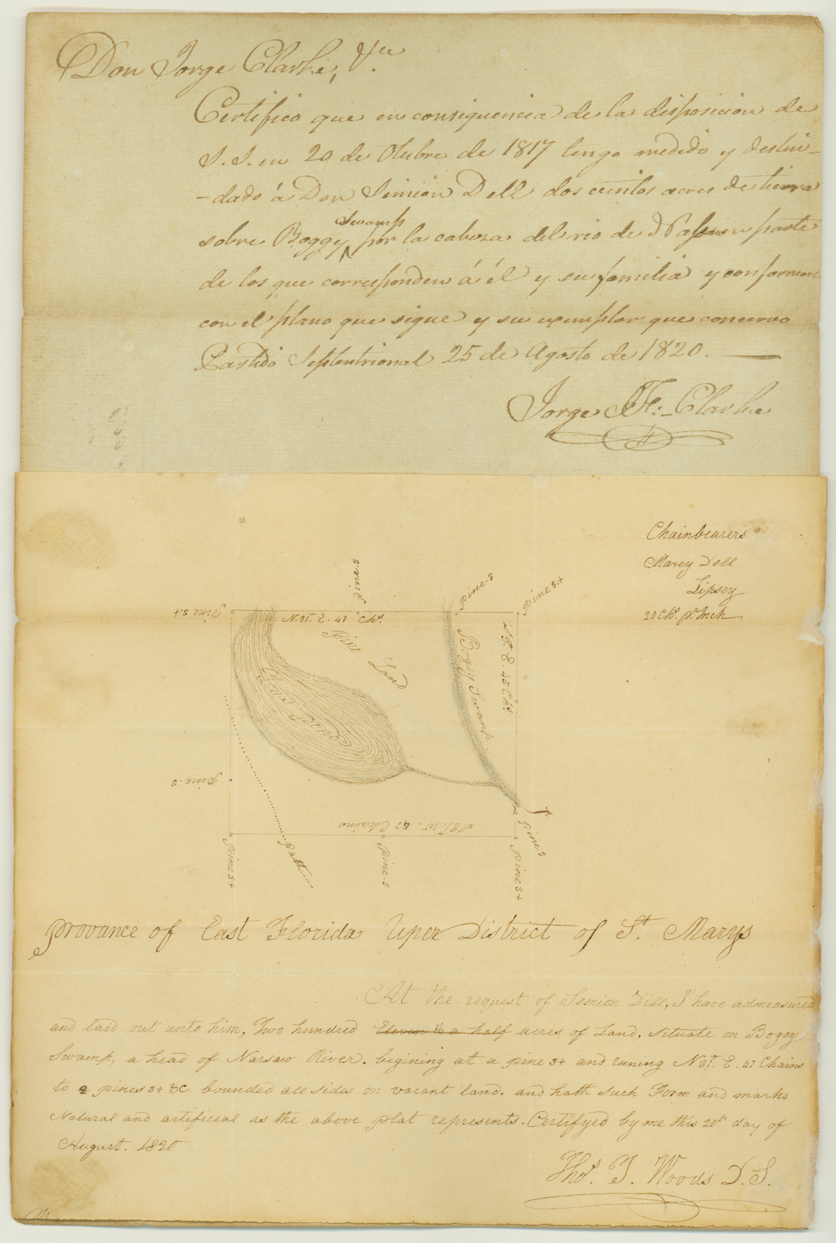 Don Jorge Clarke, &ca
Certifico que en consiguencia de la disposicion de
S. S. en 20 de Otubre de 1817 tengo medido y deslin-
-dado á Don Simion Dell dos cientos acres de tierra
Swamp
sobre Boggy por la cabeza del rio de parte
de los que corresponden á él y su familia y conforman
con el plano que sigue y su exemplar que concervo
Partido Septentrional 25 de Agosto de 1820.
Jorge J. F. Clarke
Chainbearers
Marey Dell
Lipsey
20 Chs. pr. Inch
Pine 3+
Pine 3
Pine 3
Pine 3+
N. 87. E. 47 Chs.
Pine Land
Bogey Swamp
E 45 Chs.
Pine 3
47 Chains
Pine 3
Pine 3+
Path
Pine 3
Pine 3+
Provance of East Florida Uper District of St. Marys
At the request of Semion Dill, I have admeasured
and laid out unto him, Two hundred Eleven & a half acres of Land, situate on Bogey
Swamp, a head of Narsaw River. begining at a pine 3+ and runing N 87. E. 47 Chains
to a pines 3+ &C bounded all sides on vacant land. and hath such Form and marks
Natural and artificeal as the above plat represents. Certifyed by me this 20th day of
August. 1820
Thos. J. Woods D. S.